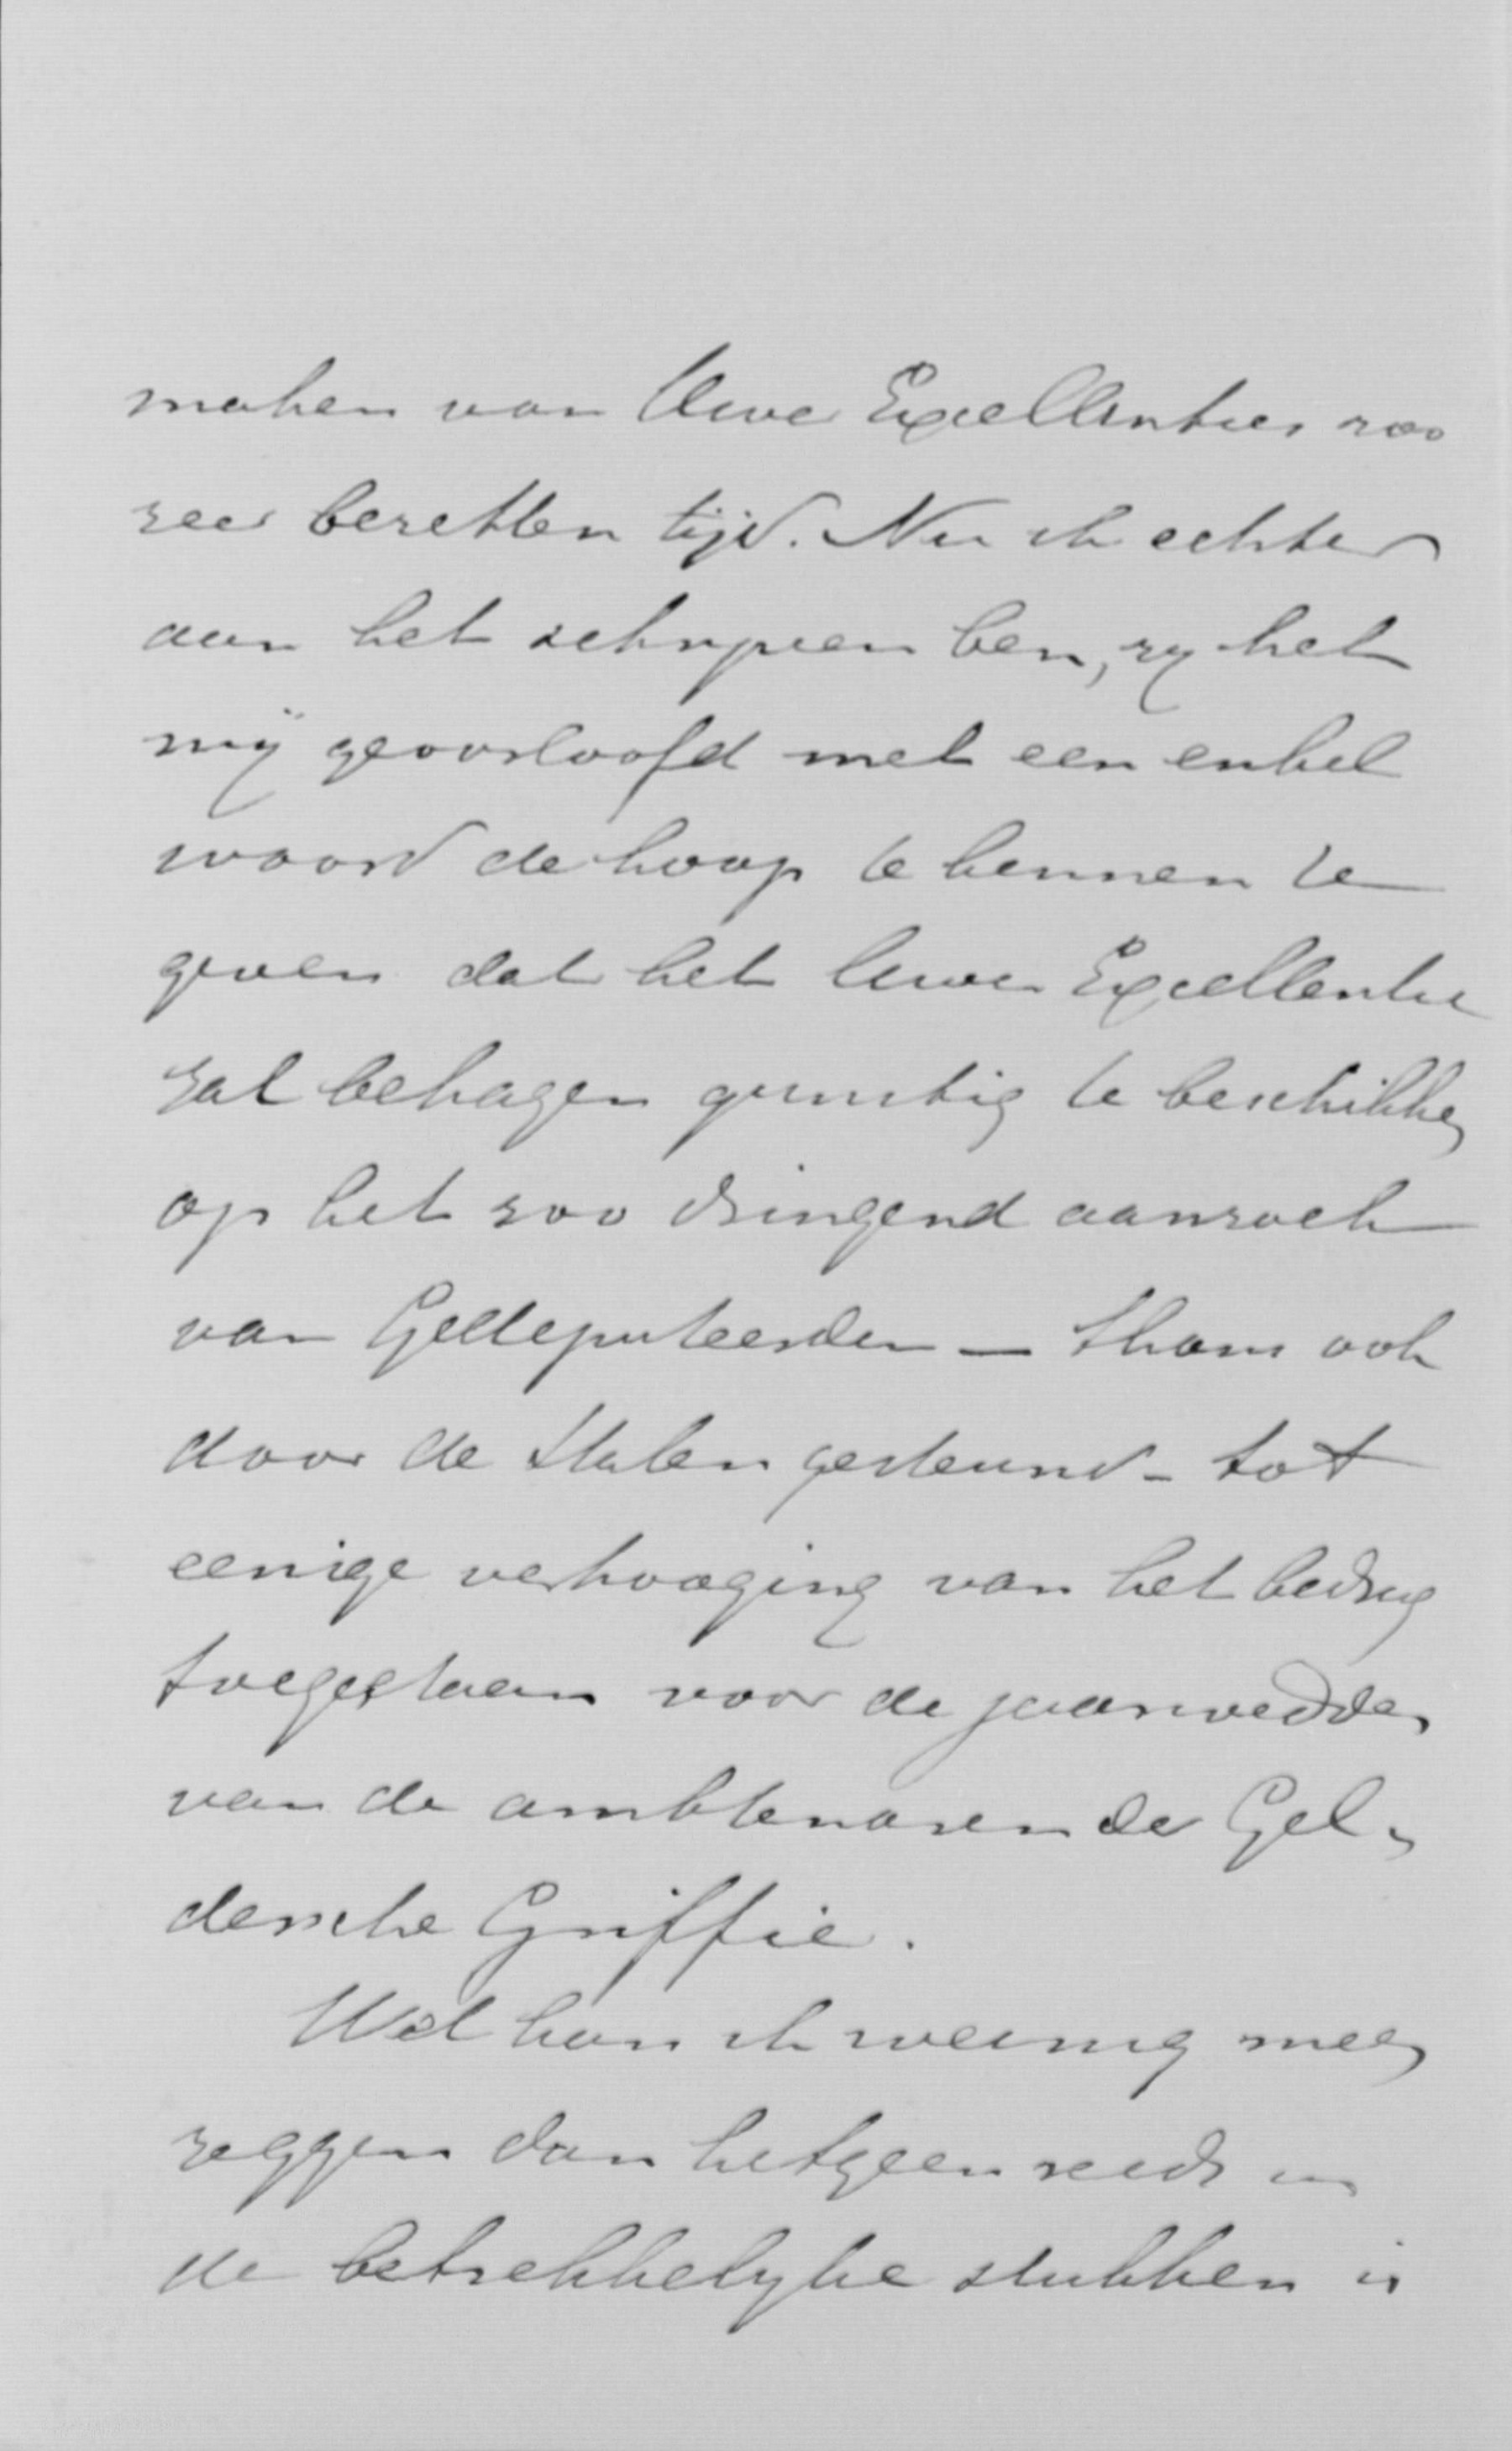 maken van Uwer Excellenties zoo
zeer bezetten tijd. Nu ik echter
aan het schrijven ben, zij het
mij geoorloofd met een enkel
woord de hoop te kennen te
geven dat het Uwer Excellentie
zal behagen gunstig te beschikken
op het zoo dringend aanzoek
van Gedeputeerden — thans ook
door de Staten gesteund — tot
eenige verhooging van het bedrag
toegestaan voor de jaarwedden
van de ambtenaren der Gel-
dersche Griffie.
Wel kan ik weinig meer
zeggen dan hetgeen reeds in
de betrekkelijke stukken is